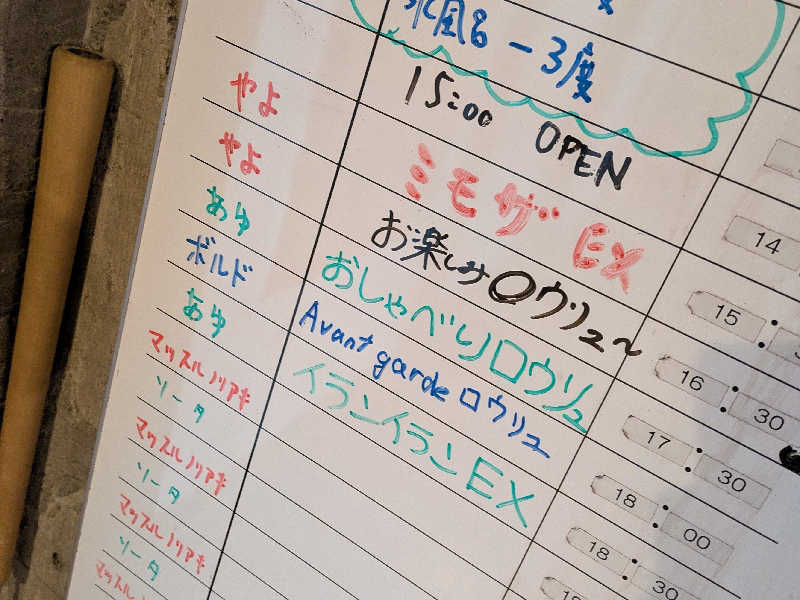 水風呂 - 3度
15:00 OPEN
やよ ミモザ EX 14
やよ お楽しみロウリュ〜 15:
あゆ おしゃべりロウリュ 16:30
ボルド Avant garde ロウリュ 17:30
あゆ イランイラン EX 18:00
マッスルノリアキ 18:30
ソータ
マッスルノリアキ
ソータ
マッスルノリアキ
ソータ
マッスル